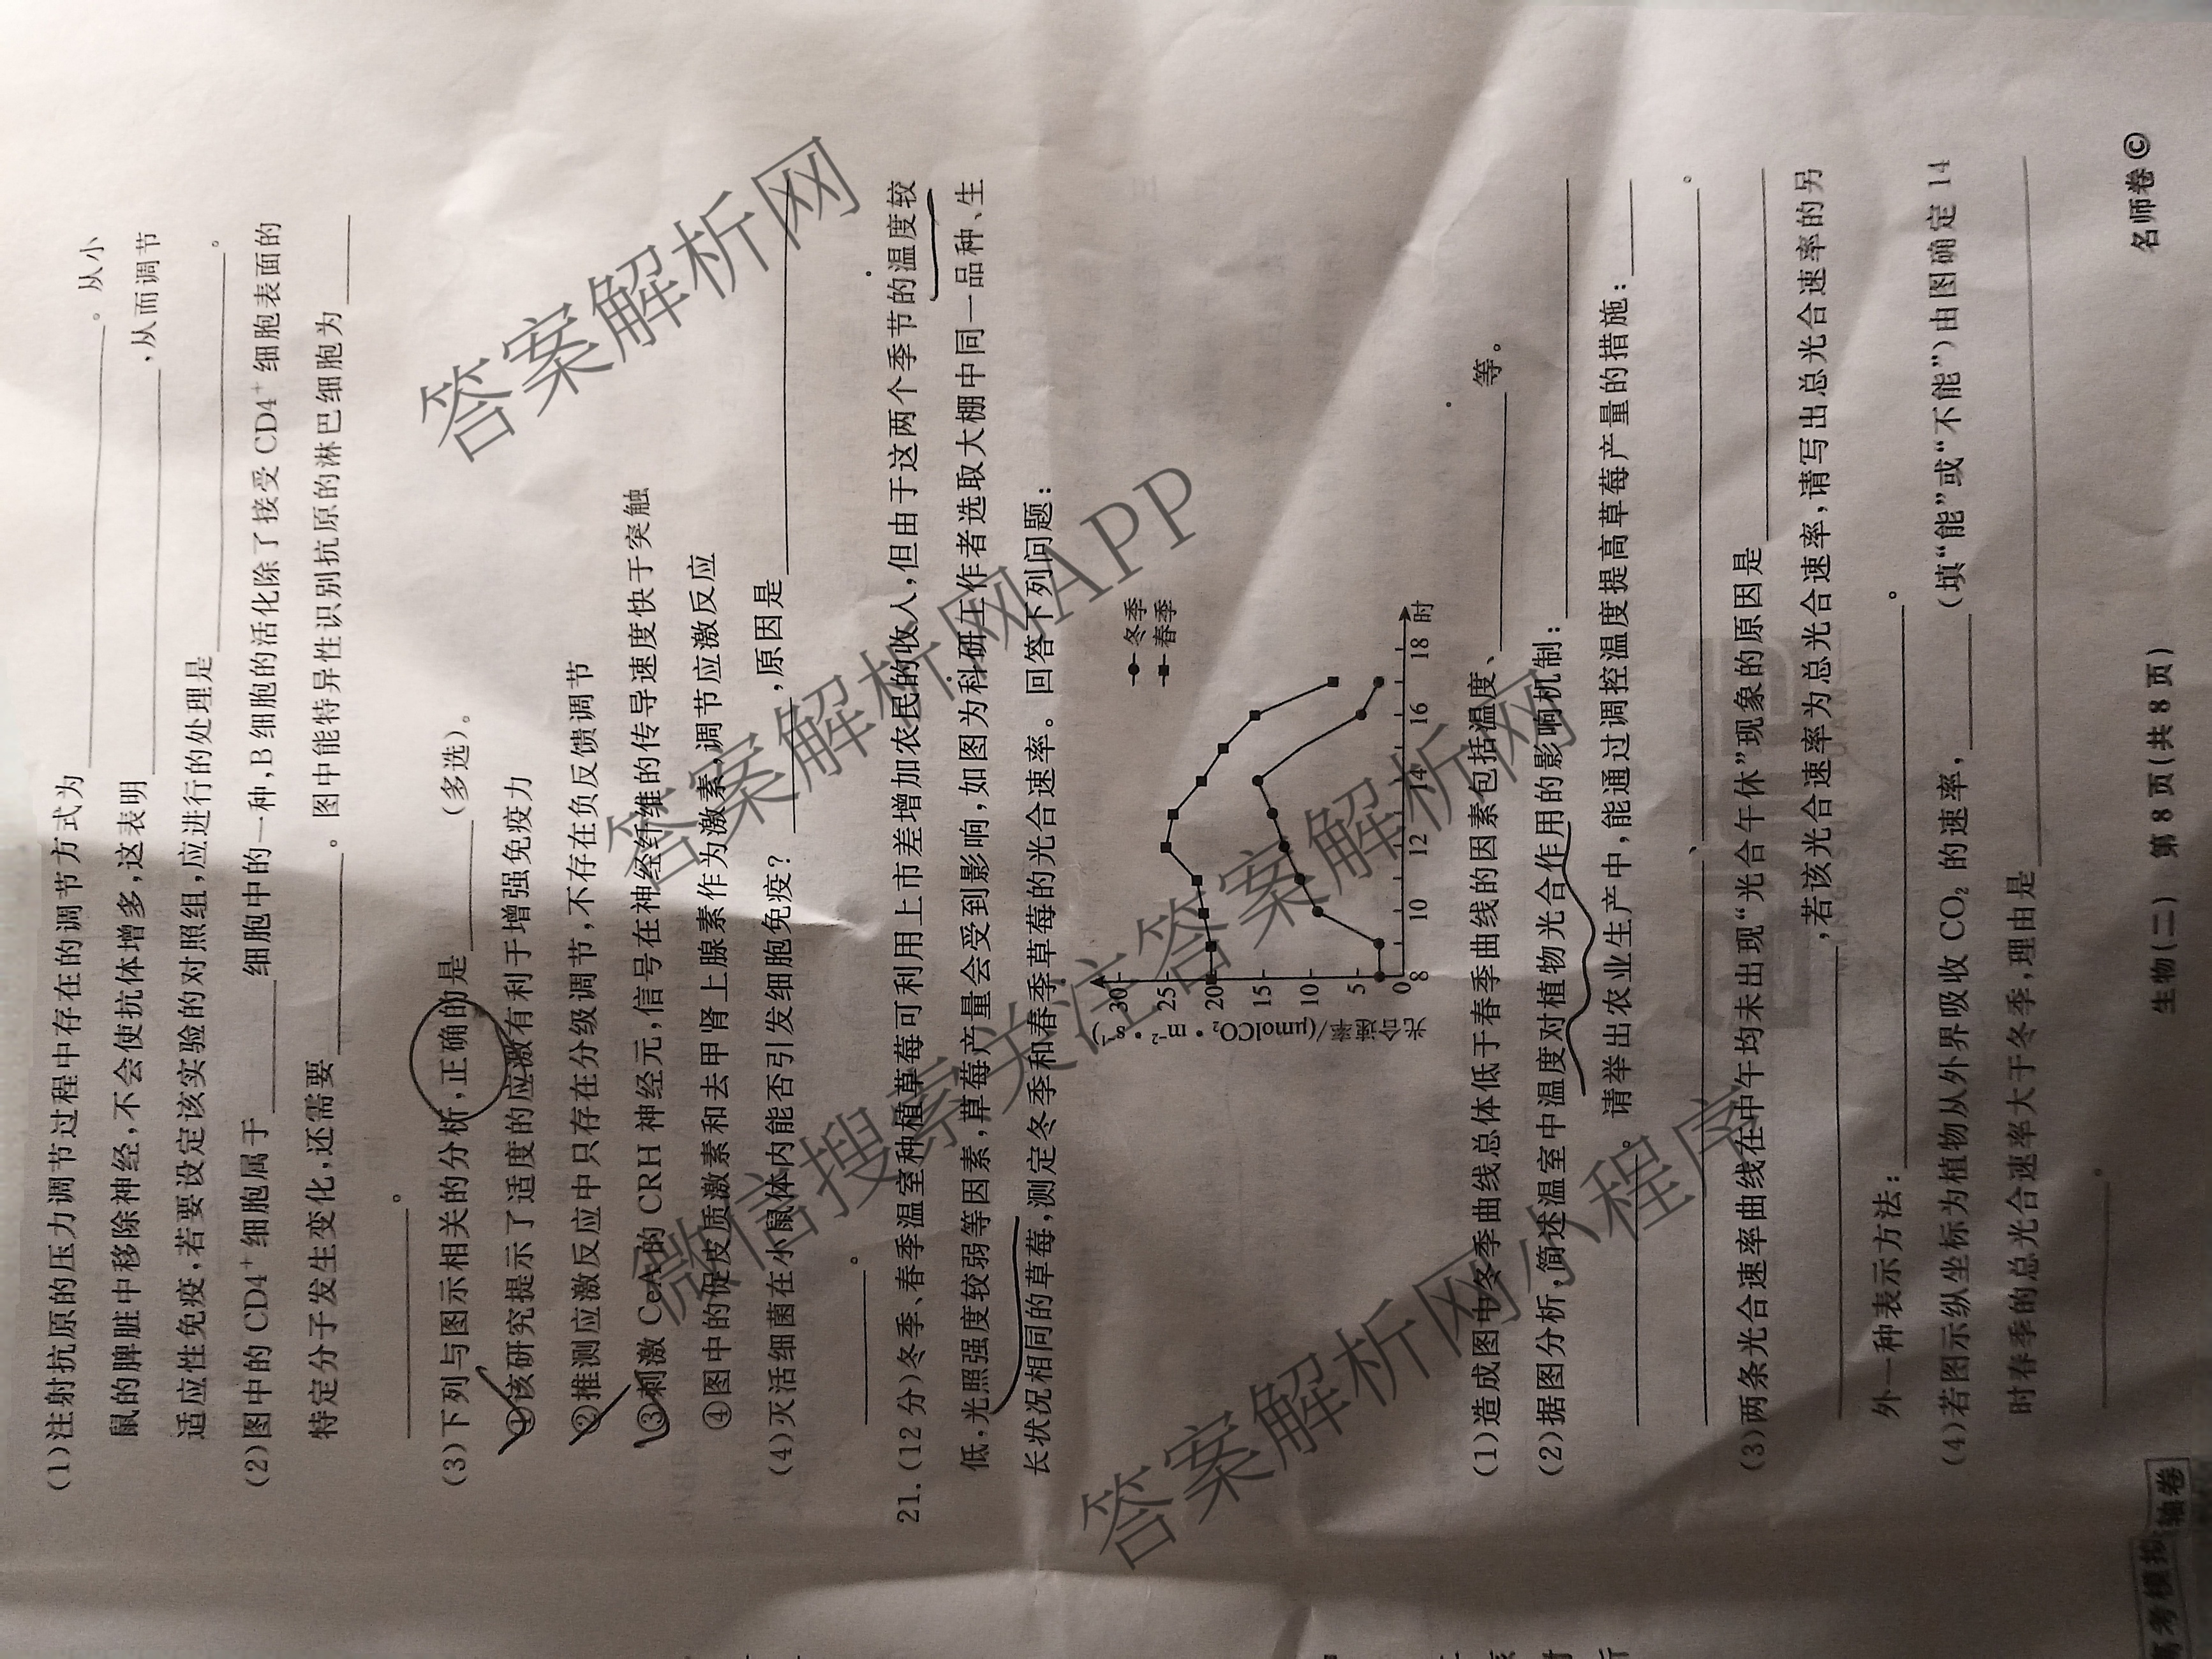 (1)注射抗原的压力调节过程中存在的调节方式为________。从小
鼠的脾脏中移除神经,不会使抗体增多,这表明________,从而调节
适应性免疫,若要设定该实验的对照组,应进行的处理是________。
(2)图中的 CD4⁺ 细胞属于________细胞中的一种,B 细胞的活化除了接受 CD4⁺ 细胞表面的
特定分子发生变化,还需要________。图中能特异性识别抗原的淋巴细胞为________
________。
(3)下列与图示相关的分析,正确的是________(多选)。
①该研究提示了适度的应激有利于增强免疫力
②推测应激反应中只存在分级调节,不存在负反馈调节
③刺激 CeA 的 CRH 神经元,信号在神经纤维的传导速度快于突触
④图中的促皮质激素和去甲肾上腺素作为激素,调节应激反应
(4)灭活细菌在小鼠体内能否引发细胞免疫?________,原因是________
________。
21.(12 分)冬季、春季温室种植草莓可利用上市差增加农民的收入,但由于这两个季节的温度较
低,光照强度较弱等因素,草莓产量会受到影响,如图为科研工作者选取大棚中同一品种、生
长状况相同的草莓,测定冬季和春季草莓的光合速率。回答下列问题:
光合速率/(μmolCO₂·m⁻²·s⁻¹)
30
25
20
15
10
5
0
8 10 12 14 16 18 时
冬季
春季
(1)造成图中冬季曲线总体低于春季曲线的因素包括温度、________等。
(2)据图分析,简述温室中温度对植物光合作用的影响机制:________
________。请举出农业生产中,能通过调控温度提高草莓产量的措施:________
________、________。
(3)两条光合速率曲线在中午均未出现“光合午休”现象的原因是________
________,若该光合速率为总光合速率,请写出总光合速率的另
外一种表示方法:________。
(4)若图示纵坐标为植物从外界吸收 CO₂ 的速率,________(填“能”或“不能”)由图确定 14
时春季的总光合速率大于冬季,理由是________
________。
高考模拟 轴卷
生物(二) 第 8 页(共 8 页)
名师卷 ©
答案解析网
答案解析网APP
微信搜索关注答案解析网
答案解析网小程序